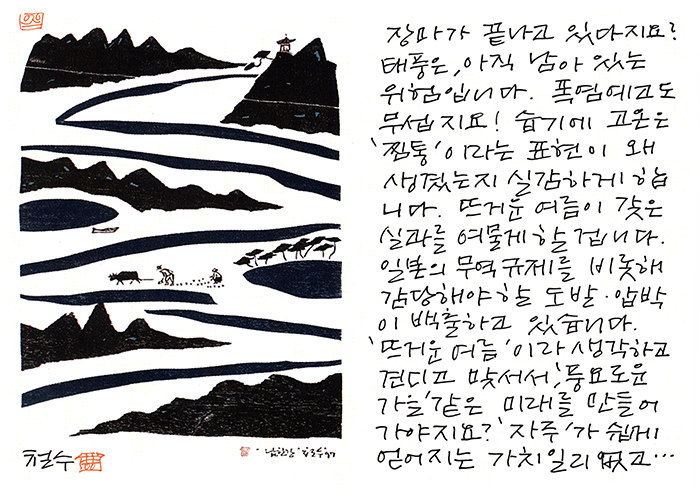 장마가 끝나고 있다지요?
태풍은, 아직 남아 있는
위험입니다. 폭염예고도
무섭지요! 습기에 고온은
'찜통'이라는 표현이 왜
생겼는지 실감하게 합
니다. 뜨거운 여름이 갖은
실과를 여물게 할 겁니다.
일본의 무역규제를 비롯해
감당해야 할 도발·압박
이 백출하고 있습니다.
'뜨거운 여름'이라 생각하고
견디고 맞서서, '풍요로운
가을' 같은 미래를 만들어
가야지요? '자주'가 쉽게
얻어지는 가치일리 없고…
철수
남한강 철수 97